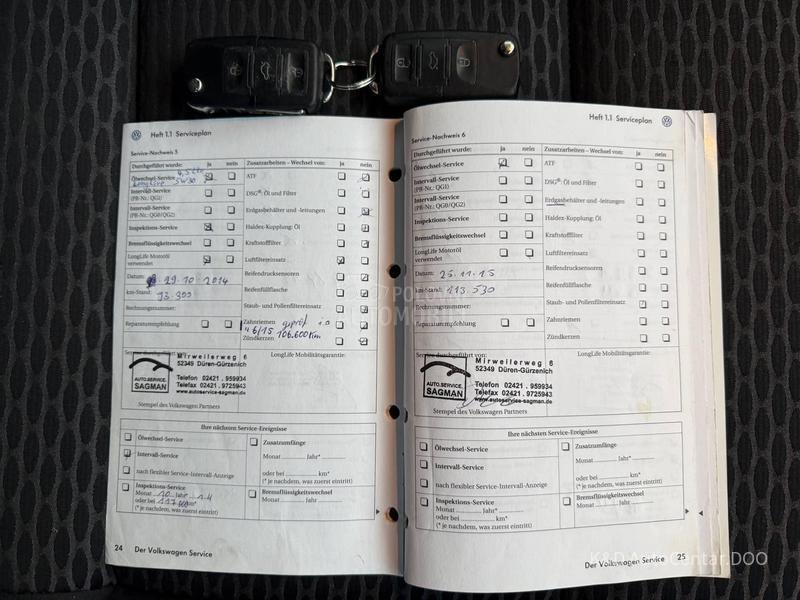 Heft 1.1 Serviceplan
Service-Nachweis 5
Durchgeführt wurde: ja nein Zusatzarbeiten – Wechsel von: ja nein
Ölwechsel-Service 4,5 Ltr. ATF
Longlife 5W30
Intervall-Service
(PR-Nr.: QG1) DSG®: Öl und Filter
Intervall-Service
(PR-Nr.: QG0/QG2) Erdgasbehälter und -leitungen
Inspektions-Service Haldex-Kupplung: Öl
Bremsflüssigkeitswechsel Kraftstofffilter
LongLife Motoröl
verwendet Luftfiltereinsatz
Datum: 29.10.2014 Reifendrucksensoren
km-Stand: 93.300 Reifenfüllflasche
Rechnungsnummer: Staub- und Pollenfiltereinsatz
Reparaturempfehlung Zahnriemen geprüft i.o
6/15 106.600 km
Zündkerzen
Service durchgeführt von: LongLife Mobilitätsgarantie:
Mirweilerweg 6
52349 Düren-Gürzenich
AUTO.SERVICE.
SAGMAN
Telefon 02421 . 959934
Telefax 02421 . 9725943
www.autoservice-sagman.de
Stempel des Volkswagen Partners
Ihre nächsten Service-Ereignisse
Ölwechsel-Service Zusatzumfänge
Intervall-Service Monat Jahr*
nach flexibler Service-Intervall-Anzeige oder bei km*
(* je nachdem, was zuerst eintritt)
Inspektions-Service Bremsflüssigkeitswechsel
Monat 10 Jahr Monat Jahr
oder bei km*
(* je nachdem, was zuerst eintritt)
24 Der Volkswagen Service
Heft 1.1 Serviceplan
Service-Nachweis 6
Durchgeführt wurde: ja nein Zusatzarbeiten – Wechsel von: ja nein
Ölwechsel-Service ATF
Intervall-Service
(PR-Nr.: QG1) DSG®: Öl und Filter
Intervall-Service
(PR-Nr.: QG0/QG2) Erdgasbehälter und -leitungen
Inspektions-Service Haldex-Kupplung: Öl
Bremsflüssigkeitswechsel Kraftstofffilter
LongLife Motoröl
verwendet Luftfiltereinsatz
Datum: 25.11.15 Reifendrucksensoren
km-Stand: 113.530 Reifenfüllflasche
Rechnungsnummer: Staub- und Pollenfiltereinsatz
Reparaturempfehlung Zahnriemen
Zündkerzen
Service durchgeführt von: LongLife Mobilitätsgarantie:
Mirweilerweg 6
52349 Düren-Gürzenich
AUTO.SERVICE.
SAGMAN
Telefon 02421 . 959934
Telefax 02421 . 9725943
www.autoservice-sagman.de
Stempel des Volkswagen Partners
Ihre nächsten Service-Ereignisse
Ölwechsel-Service Zusatzumfänge
Intervall-Service Monat Jahr*
nach flexibler Service-Intervall-Anzeige oder bei km*
(* je nachdem, was zuerst eintritt)
Inspektions-Service Bremsflüssigkeitswechsel
Monat Jahr* Monat Jahr
oder bei km*
(* je nachdem, was zuerst eintritt)
Der Volkswagen Service 25
K&D Auto Centar.DOO